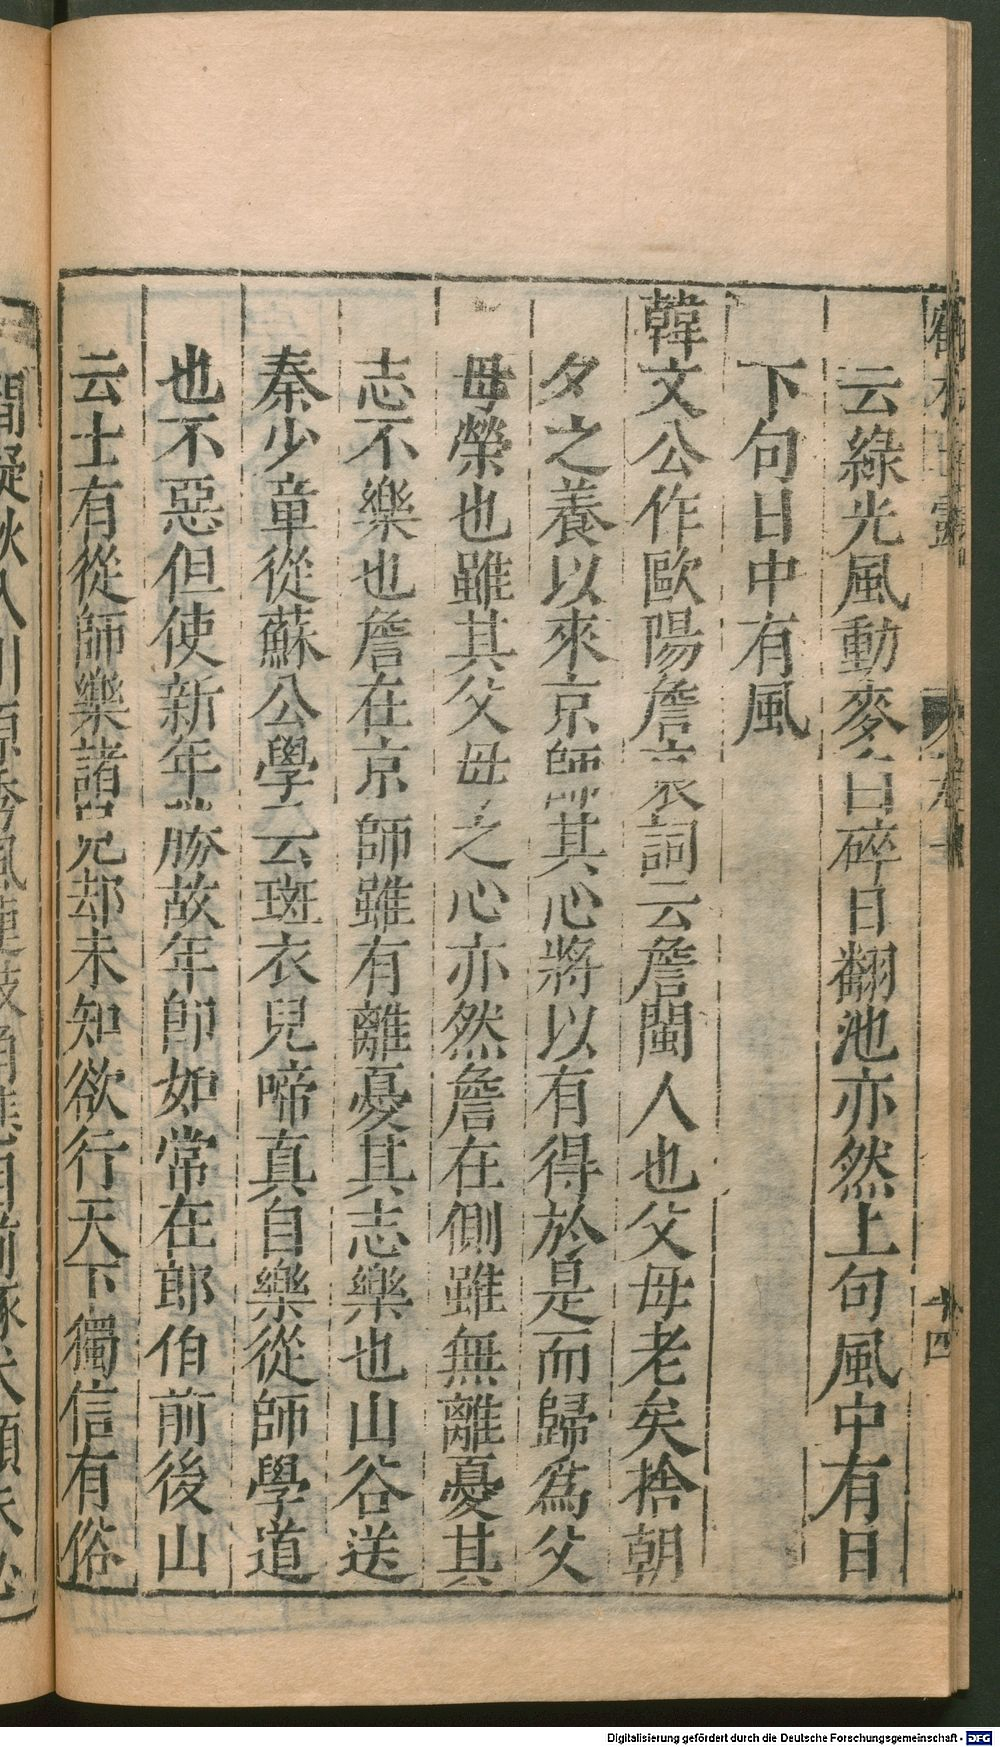 云綠光風動麥白碎日翻池亦然上句風中有日
下句日中有風
韓文公作歐陽詹哀詞云詹閩人也父母老矣捨朝
夕之養以來京師其心將以有得於是而歸爲父
母榮也雖其父母之心亦然詹在側雖無離憂其
志不樂也詹在京師雖有離憂其志樂也山谷送
秦少章從蘇公學云斑衣兒啼真自樂從師學道
也不惡但使新年勝故年即如常在郎伯前後山
云士有從師樂諸兄却未知欲行天下獨信有俗
Digitalisierung gefördert durch die Deutsche Forschungsgemeinschaft - DFG